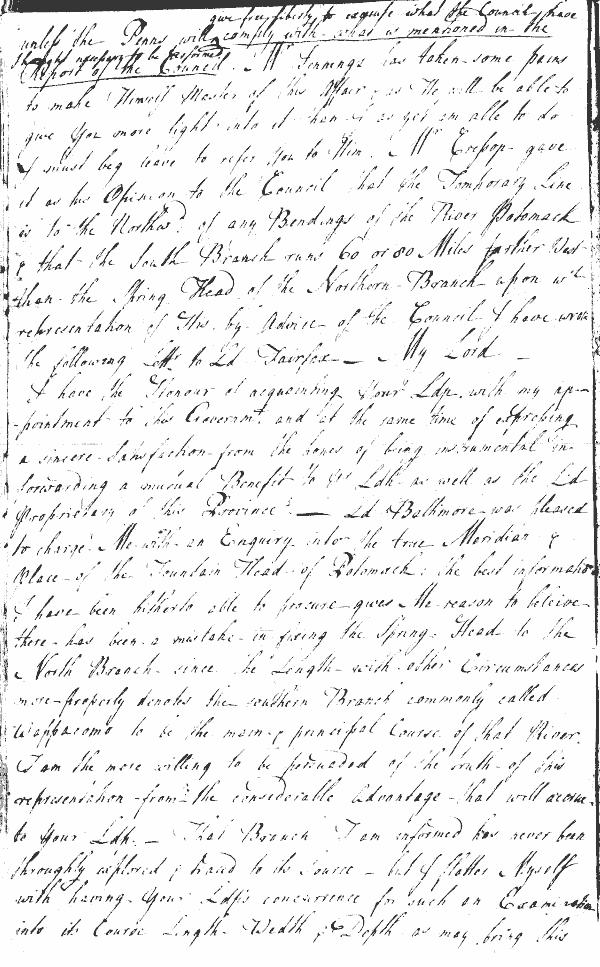 give free liberty to expense what the Council have
unless the Penns will comply with what is mentioned in the
thought necessary to be performed
Report of the Council. Mr Jennings has taken some pains
to make Himself Master of this Affair, as He will be able to
give You more light into it than I as yet am able to do
I must beg leave to refer You to Him. Mr Cresop gave
it as his Opinion to the Council that the Temporary Line
is to the Northwd. of any Bendings of the River Potomack
& that the South Branch runs 60 or 80 Miles farther West
than the Spring Head of the Northern Branch upon wch
representation of His by Advice of the Council I have wrote
the following Lettr to Ld Fairfax — My Lord —
I have the Honour of acquainting Your Ldp with my ap-
-pointment to this Governmt. and at the same time of expressing
a sincere Satisfaction from the hopes of being instrumental in
forwarding a mutual Benefit to Yr Ldp. as well as the Ld
Proprietary of this Province. — Ld Baltimore was pleased
to charge Me with an Enquiry into the true Meridian &
Place of the Fountain Head of Potomack: the best information
I have been hitherto able to procure gives Me reason to beleive
there has been a mistake in fixing the Spring Head to the
North Branch since the Length with other Circumstances
more properly denotes the southern Branch commonly called
Wappacomo to be the main & principal Course of that River.
I am the more willing to be persuaded of the truth of this
representation from the considerable Advantage that will accrue
to Your Ldp. — That Branch I am informed has never been
throughly explored & traced to its Source — but I flatter Myself
with having Your Ldps concurrence for such an Examination
into its Course Length Width & Depth as may bring this